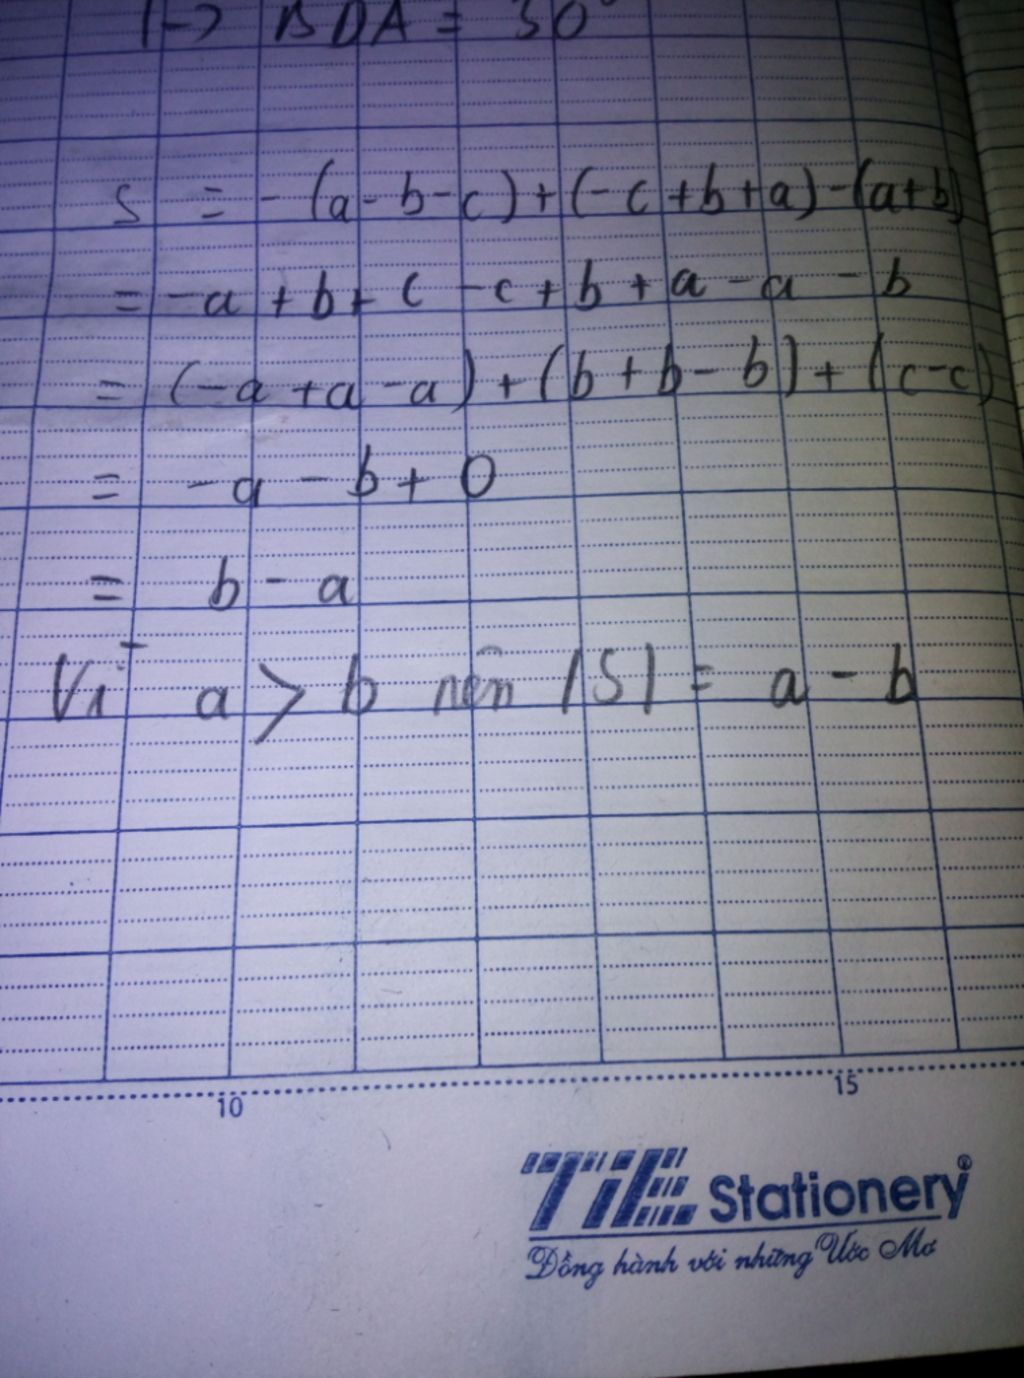 (-) BDA = 30°
S = -(a-b-c)+(-c+b+a)-(a+b)
= -a+b+c-c+b+a-a-b
= (-a+a-a)+(b+b-b)+(c-c)
= -a-b+0
= b-a
Vì a > b nên |S| = a-b
10
15
TiE Stationery®
Đồng hành với những Ước Mơ